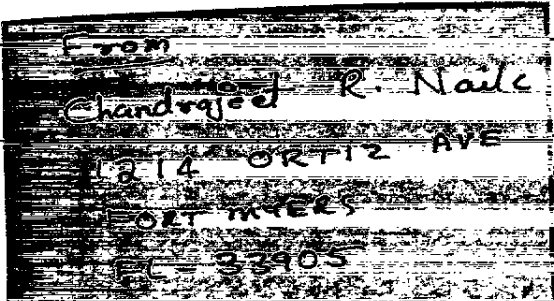 From
Chandrajeet R. Naik
1214 ORTIZ AVE
FORT MYERS
FL - 33905